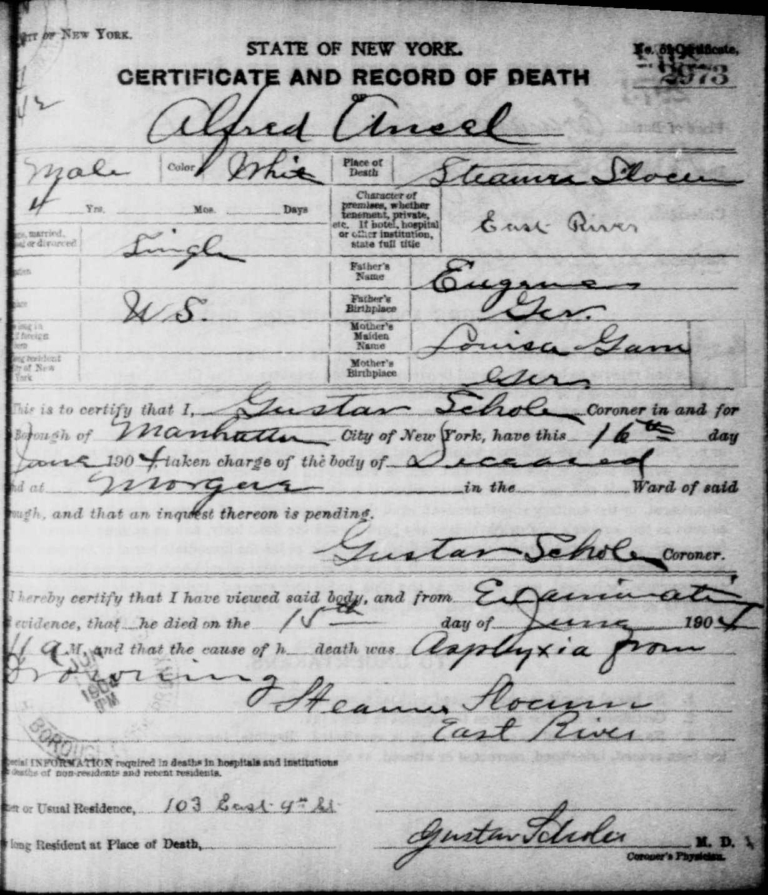 CITY OF NEW YORK.
STATE OF NEW YORK.
No. of Certificate,
2973
CERTIFICATE AND RECORD OF DEATH
OF
Alfred Ansel
Male Color White Place of Death Steamer Slocum
4 Yrs. Mos. Days Character of premises, whether tenement, private, etc. If hotel, hospital or other institution, state full title East River
married, or divorced Single
Father's Name Eugene
U S. Father's Birthplace Ger.
Mother's Maiden Name Louisa
Mother's Birthplace Ger
This is to certify that I, Gustav Scholer Coroner in and for
Borough of Manhattan City of New York, have this 16th day
June 1904 taken charge of the body of Deceased
at Morgue in the Ward of said
and that an inquest thereon is pending.
Gustav Scholer Coroner.
I hereby certify that I have viewed said body, and from Examination
evidence, that he died on the 15th day of June 1904
11 a M, and that the cause of h death was Asphyxia from
Drowning
Steamer Slocum
East River
BOROUGH
1904
PM
INFORMATION required in deaths in hospitals and institutions
deaths of non-residents and recent residents.
or Usual Residence, 103 East 4th St
long Resident at Place of Death,
Gustav Scholer M. D.
Coroner's Physician.